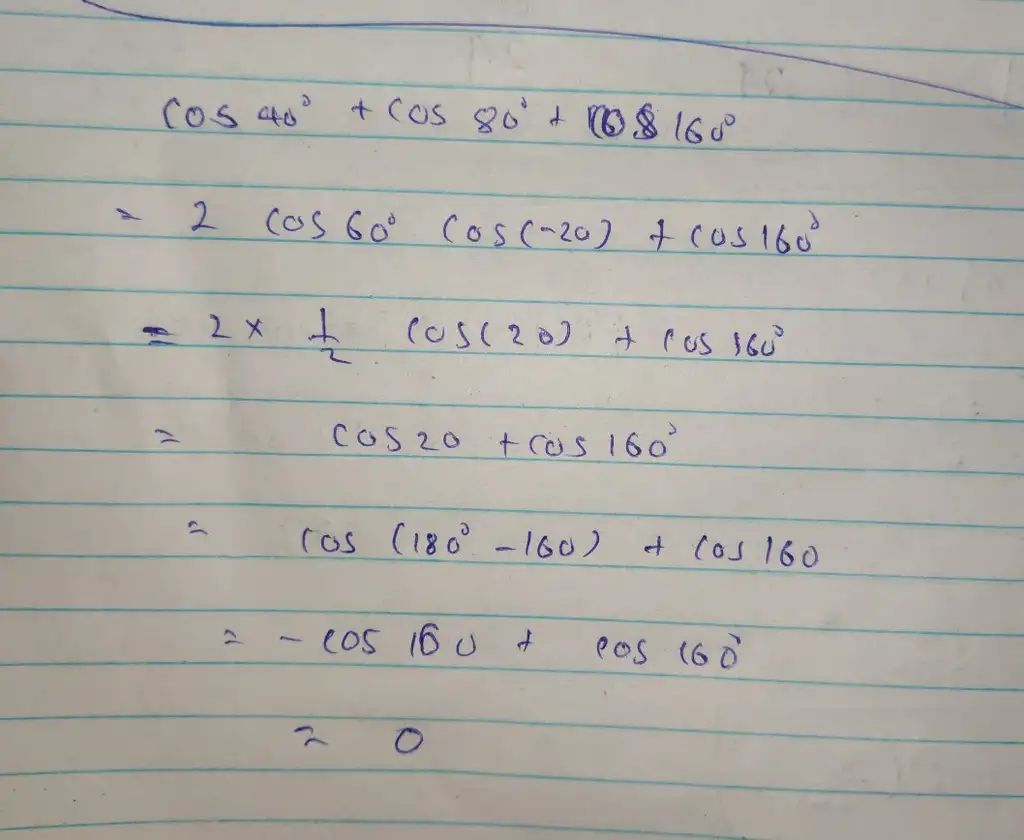 cos 40° + cos 80° + cos 160°
= 2 cos 60° cos(-20) + cos 160°
= 2 × 1/2 cos(20) + cos 160°
= cos 20 + cos 160°
= cos (180° - 160) + cos 160
= - cos 160 + cos 160°
= 0